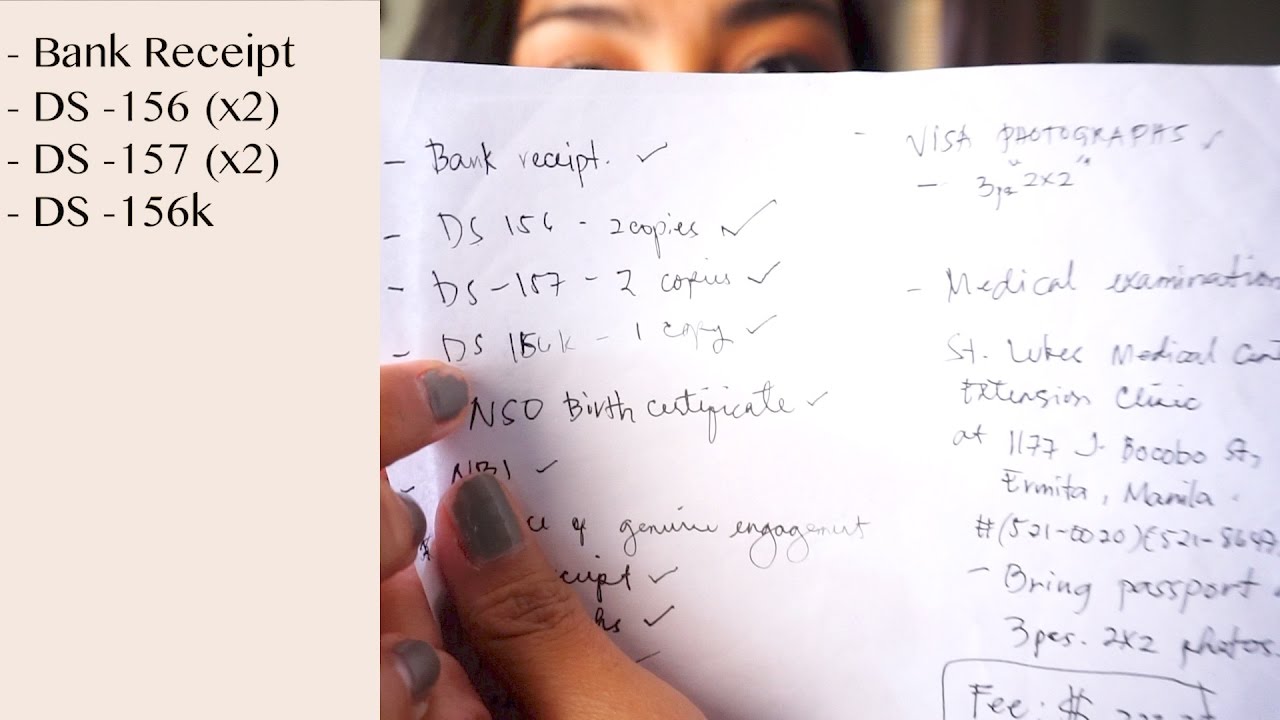 - Bank Receipt
- DS -156 (x2)
- DS -157 (x2)
- DS -156k
- Bank receipt. ✓
- DS 156 - 2 copies ✓
- DS-157 - 2 copies ✓
- DS 156k - 1 copy ✓
NSO Birth certificate ✓
- NBI ✓
of genuine engagement
✓
✓
- VISA PHOTOGRAPHS ✓
- 3pcs "2x2"
- Medical examination
St. Lukes Medical Cent
Extension Clinic
at 1177 J. Bocobo St,
Ermita, Manila.
#(521-0020)
- Bring passport
3pcs. 2x2 photos.
Fee: $